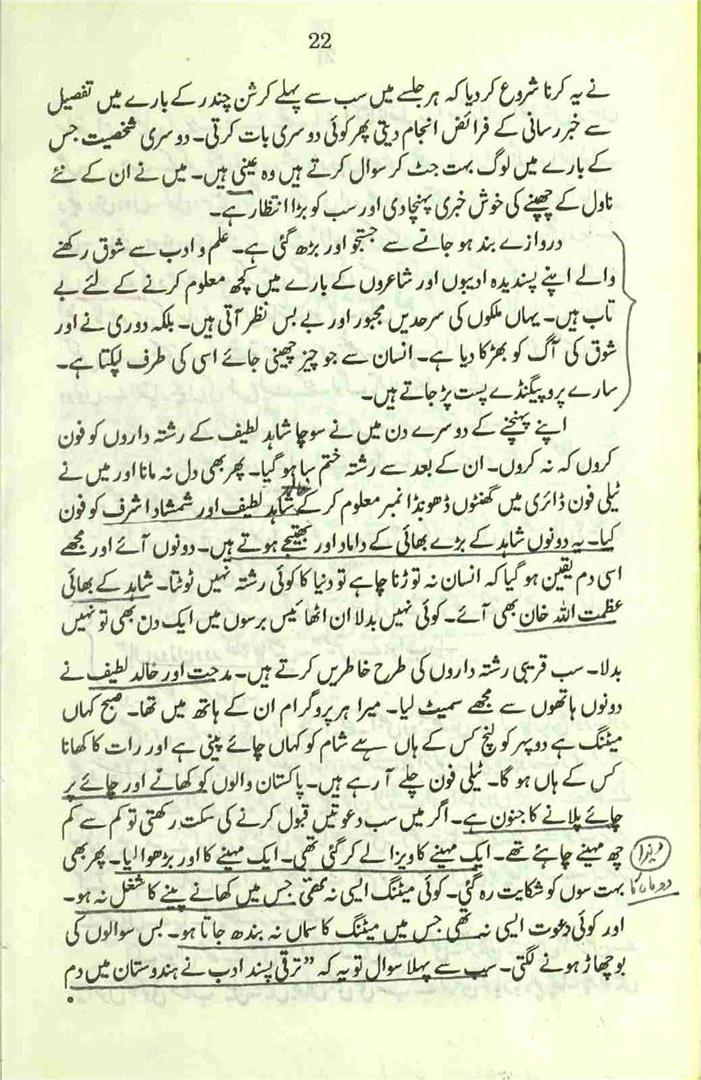 22
نے یہ کرنا شروع کر دیا کہ ہر جلسے میں سب سے پہلے کرشن چندر کے بارے میں تفصیل
سے خبر رسانی کے فرائض انجام دیتی پھر کوئی دوسری بات کرتی۔ دوسری شخصیت جس
کے بارے میں لوگ بہت جٹ کر سوال کرتے ہیں وہ عینی ہیں۔ میں نے ان کے نئے
ناول کے چھپنے کی خوش خبری پہنچا دی اور سب کو بڑا انتظار ہے۔
دروازے بند ہو جانے سے جستجو اور بڑھ گئی ہے۔ علم و ادب سے شوق رکھنے
والے اپنے پسندیدہ ادیبوں اور شاعروں کے بارے میں کچھ معلوم کرنے کے لئے بے
تاب ہیں۔ یہاں ملکوں کی سرحدیں مجبور اور بے بس نظر آتی ہیں۔ بلکہ دوری نے اور
شوق کی آگ کو بھڑکا دیا ہے۔ انسان سے جو چیز چھینی جائے اسی کی طرف لپکتا ہے۔
سارے پروپیگنڈے پست پڑ جاتے ہیں۔
اپنے پہنچنے کے دوسرے دن میں نے سوچا شاہد لطیف کے رشتہ داروں کو فون
کروں کہ نہ کروں۔ ان کے بعد سے رشتہ ختم سا ہو گیا۔ پھر بھی دل نہ مانا اور میں نے
ٹیلی فون ڈائری میں گھنٹوں ڈھونڈا نمبر معلوم کر کے شاہد لطیف اور شمشاد اشرف کو فون
خالد
کیا۔ یہ دونوں شاہد کے بڑے بھائی کے داماد اور بھتیجے ہوتے ہیں۔ دونوں آئے اور مجھے
اسی دم یقین ہو گیا کہ انسان نہ توڑنا چاہے تو دنیا کا کوئی رشتہ نہیں ٹوٹتا۔ شاہد کے بھائی
عظمت اللہ خان بھی آئے۔ کوئی نہیں بدلا ان اٹھائیس برسوں میں ایک دن بھی تو نہیں
بدلا۔ سب قریبی رشتہ داروں کی طرح خاطریں کرتے ہیں۔ مدحت اور خالد لطیف نے
دونوں ہاتھوں سے مجھے سمیٹ لیا۔ میرا ہر پروگرام ان کے ہاتھ میں تھا۔ صبح کہاں
میٹنگ ہے دوپہر کو لنچ کس کے ہاں ہے شام کو کہاں چائے پینی ہے اور رات کا کھانا
کس کے ہاں ہو گا۔ ٹیلی فون چلے آ رہے ہیں۔ پاکستان والوں کو کھانے اور چائے پر
چائے پلانے کا جنون ہے۔ اگر میں سب دعوتیں قبول کرنے کی سکت رکھتی تو کم سے کم
چھ مہینے چاہئے تھے۔ ایک مہینے کا ویزا لے کر گئی تھی۔ ایک مہینے کا اور بڑھوا لیا۔ پھر بھی
ویزا
دو ماہ کا
بہت سوں کو شکایت رہ گئی۔ کوئی میٹنگ ایسی نہ تھی جس میں کھانے پینے کا شغل نہ ہو۔
اور کوئی دعوت ایسی نہ تھی جس میں میٹنگ کا سماں نہ بندھ جاتا ہو۔ بس سوالوں کی
بوچھاڑ ہونے لگتی۔ سب سے پہلا سوال تو یہ کہ ”ترقی پسند ادب نے ہندوستان میں دم